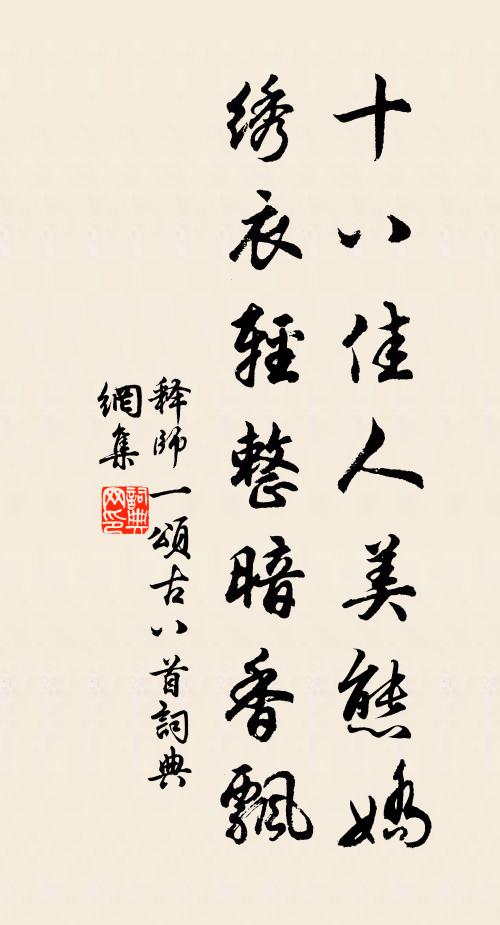 十八佳人美態嬌
绣衣輕整暗香飄
释師一頌古八首詞典
網集
詞典網印